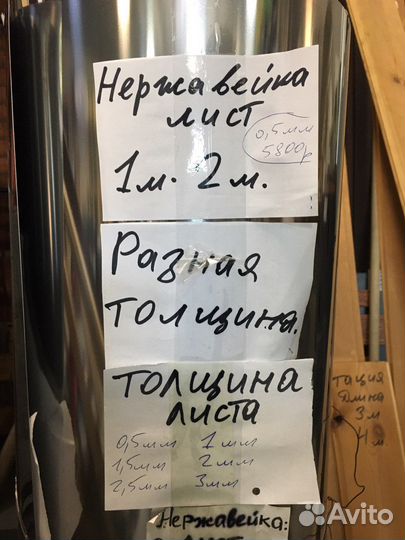 Нержавейка
лист
0,5мм
5800р
1м. 2м.
Разная
толщина.
толщина
листа
0,5мм 1мм
1,5мм 2мм
2,5мм 3мм
длина
3м
4м
Нержавейка:
лист
Avito